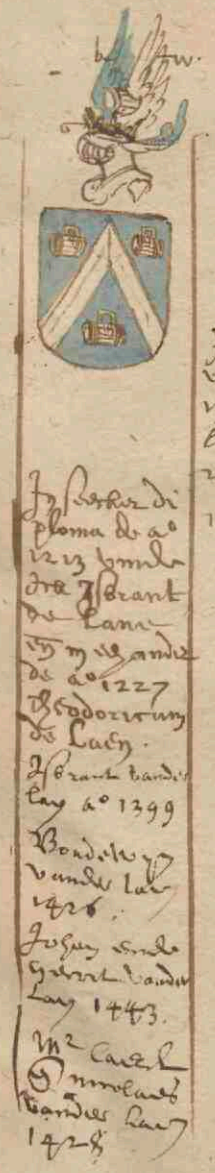 b w.
In seecker di
ploma de aº
1213 vinde
ick Isbrant
de Lane
eñ in een ander
de aº 1227
Theodoricum
de Laen.
Isbrant vander
laen aº 1399
Boudewyn
vander laen
1426.
Johan ende
gerrit vander
Laen 1443.
Mr
nicolaes
vander laen
1428